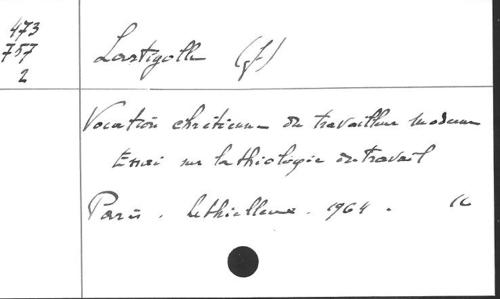 473
757
2
Lartigolle (J)
Vocation chrétienne du travailleur moderne
Essai sur la théologie du travail
Paris. Lethielleux. 1964.